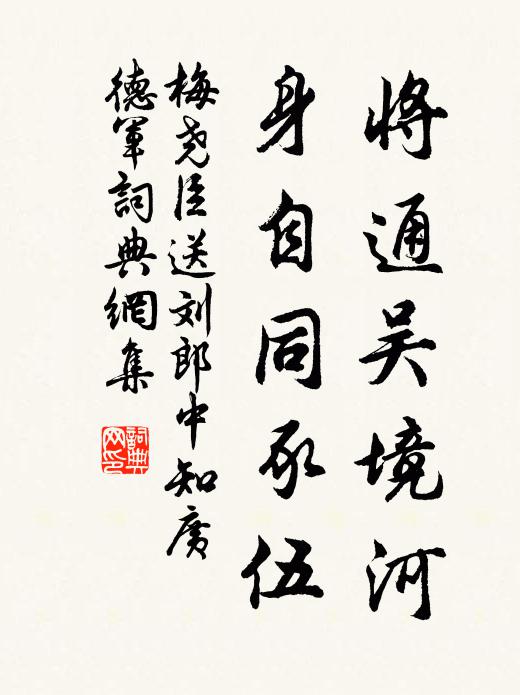 将通吴境河
身自同永伍
梅尧臣送刘郎中知广
德军词典網集
詞典
网印